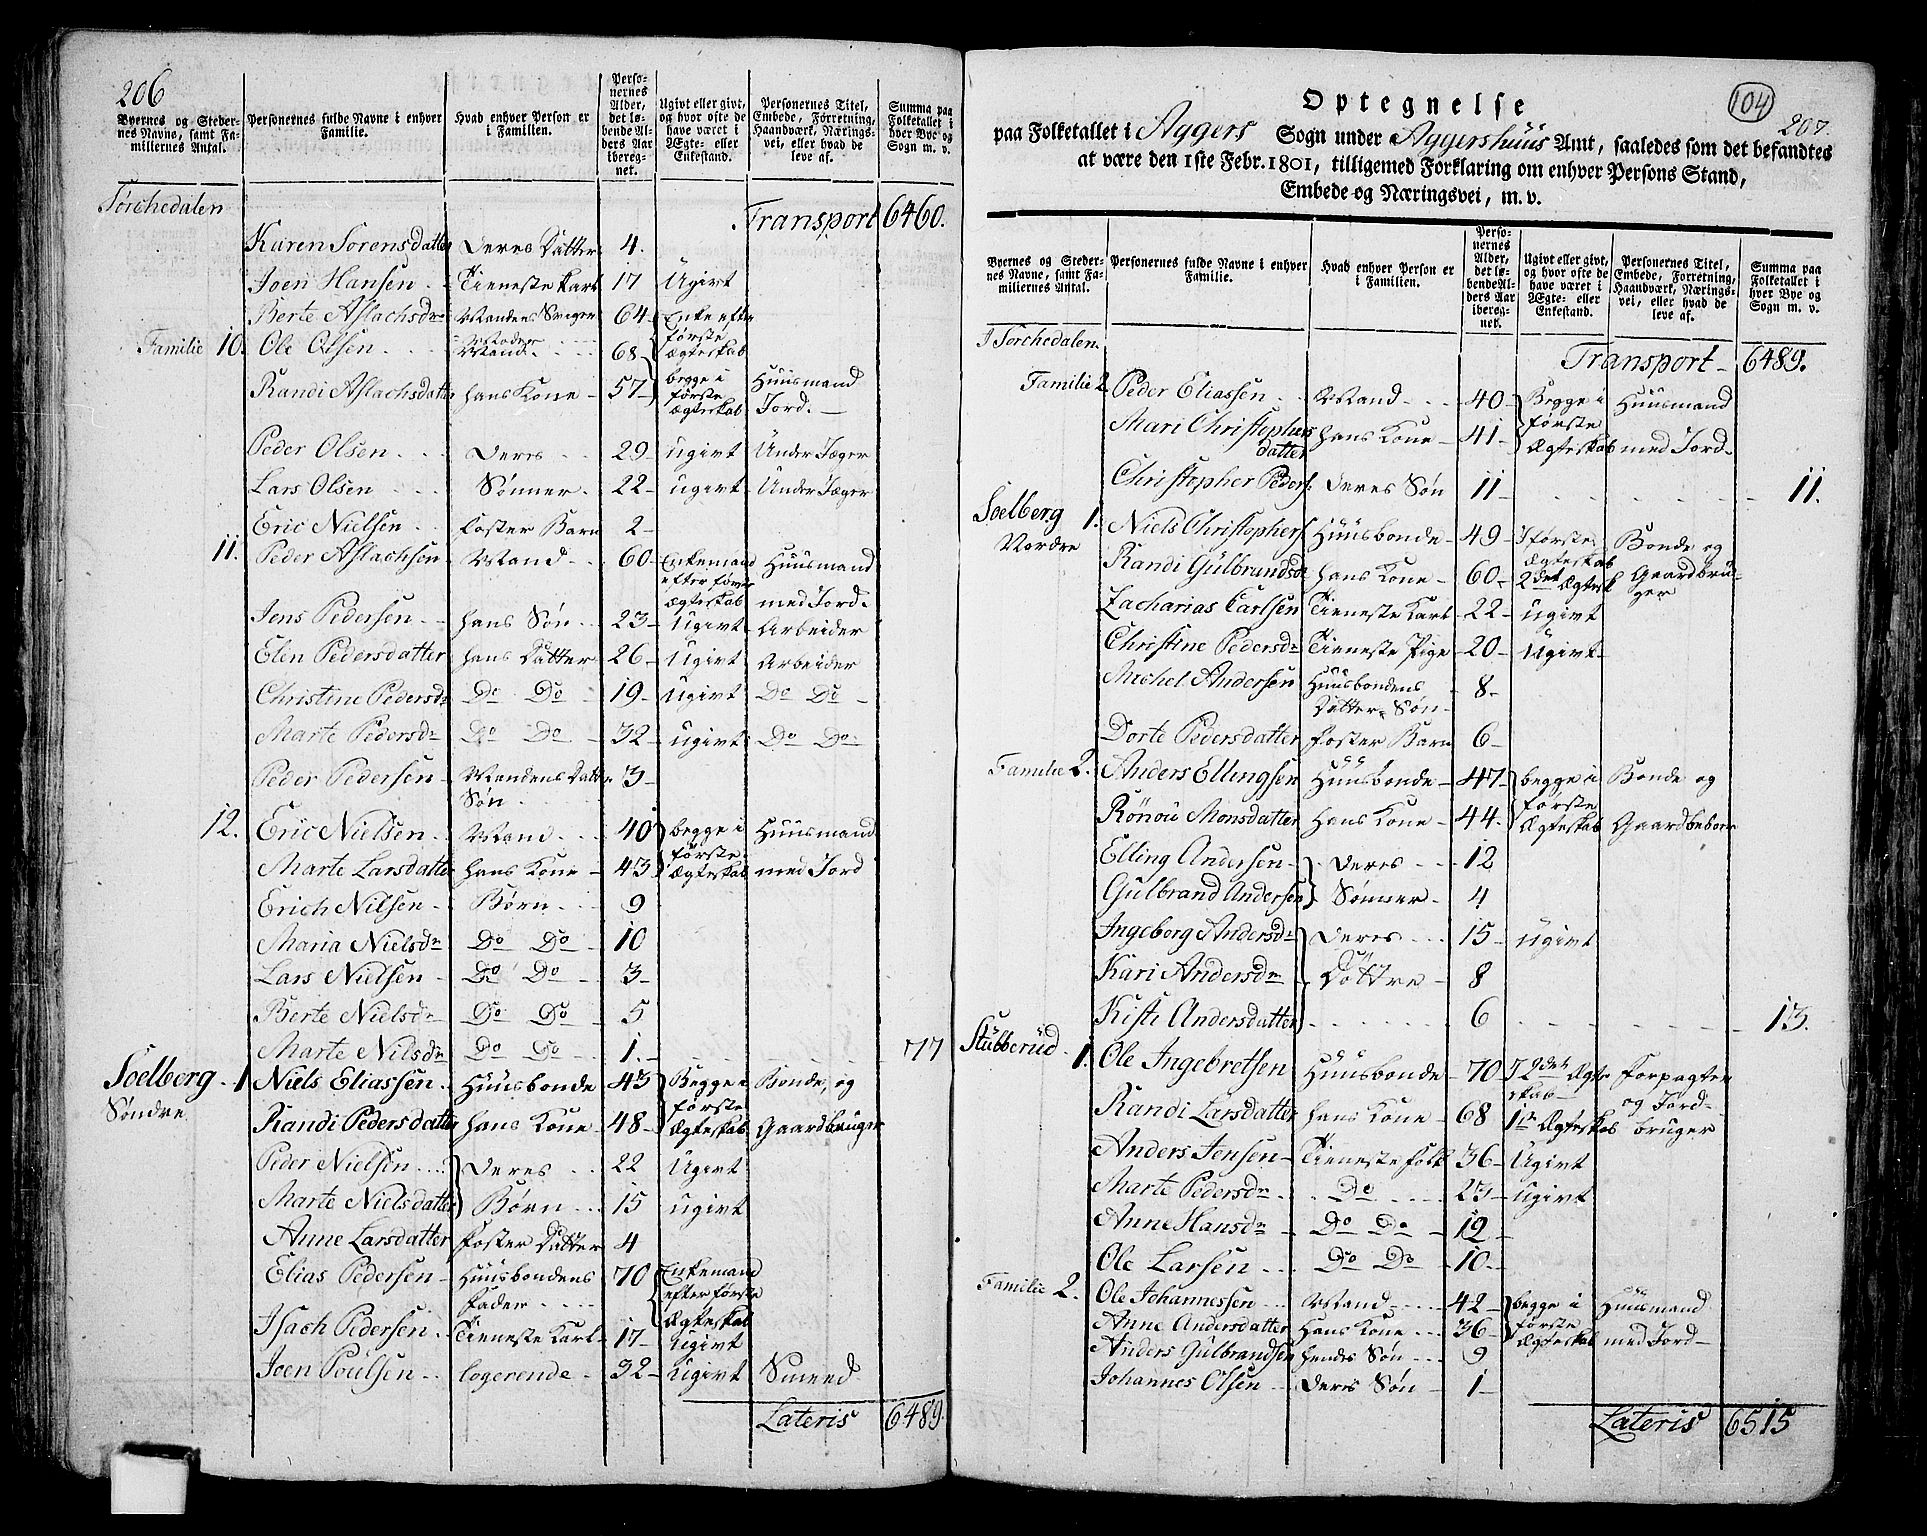 206
Byernes og Stedernes Navne, samt Familiernes Antal.
Personernes fulde Navne i enhver Familie.
Hvad enhver Person er i Familien.
Personernes Alder, det løbende Alders Aar iberegnet.
Ugivt eller givt, og hvor ofte de have været i Ægte- eller Enkestand.
Personernes Titel, Embede, Forretning, Haandværk, Næringsvei, eller hvad de leve af.
Summa paa Folketallet i hver Bye og Sogn m. v.
Torchedalen Transport 6460.
Karen Sorensdatter Deres Datter 4.
Joen Hansen Tieneste karl 17 Ugivt
Berte Aslachsdr Mandens Svigermoder 64 Enke efter første Ægteskab
Familie 10. Ole Olsen Mand 68 begge i første Ægteskab Huusmand
Randi Aslachsdatter hans Kone 57 Jord.
Peder Olsen Deres 29 ugivt Under Jæger
Lars Olsen Sønner 22 ugivt Under Jæger
Eric Nielsen Foster Barn 2
11. Peder Aslachsen Mand 60 Enkemand efter første Ægteskab Huusmand med Jord.
Jens Pedersen hans Søn 23 Ugivt Arbeider
Elen Pedersdatter hans Datter 26 Ugivt Arbeider
Christine Pedersdr Do Do 19 Ugivt Do Do
Marte Pedersdr Do Do 32 ugivt Do Do
Peder Pedersen Mandens Datter Søn 3
12. Eric Nielsen Mand 40 begge i første Ægteskab Huusmand
Marte Larsdatter hans Kone 43 med Jord
Erich Nilsen Børn 9
Maria Nielsdr Do Do 10
Lars Nielsen Do Do 3
Berte Nielsdr Do Do 5
Marte Nilsdr Do Do 1. 77
Soelberg Søndre 1 Niels Eliassen Huusbonde 45 Begge i første Ægteskab Bonde, og
Randi Pedersdatter hans Kone 48 Gaardbruger
Peder Nielsen Deres 22 Ugivt
Marte Nielsdatter Børn 15 ugivt
Anne Larsdatter Foster Datter 4
Elias Pedersen Huusbondens Fader 70 Enkemand efter første Ægteskab
Isach Pedersen Tieneste Karl 17 ugivt
Joen Poulsen logerende 32 ugivt Smed
Lateris 6489.
104
207.
Optegnelse
paa Folketallet i Aggers Sogn under Aggershuus Amt, saaledes som det befandtes
at være den 1ste Febr. 1801, tilligemed Forklaring om enhver Persons Stand,
Embede og Næringsvei, m. v.
Byernes og Stedernes Navne, samt Familiernes Antal.
Personernes fulde Navne i enhver Familie.
Hvad enhver Person er i Familien.
Personernes Alder, det løbende Alders Aar iberegnet.
Ugivt eller givt, og hvor ofte de have været i Ægte- eller Enkestand.
Personernes Titel, Embede, Forretning, Haandværk, Næringsvei, eller hvad de leve af.
Summa paa Folketallet i hver Bye og Sogn m. v.
I Torchedalen. Transport 6489.
Familie 2 Peder Eliassen Mand 40 Begge i første Ægteskab Huusmand
Mari Christophersdatter hans Kone 41 med Jord
Christopher Peders. Deres Søn 11 11.
Soelberg Nordre 1. Niels Christophers. Huusbonde 49 I første Ægteskab Bonde og
Randi Gulbrandsd. hans Kone 60 2det Ægtesk Gaardbruger
Zacharias Carlsen Tieneste Karl 22 ugivt
Christine Pedersdr Tieneste Pige 20 Ugivt
Michel Andersen Huusbondens Datter Søn 8
Dorte Pedersdatter Foster Barn 6
Familie 2. Anders Ellingsen Huusbonde 47 begge i første Ægteskab Bonde og
Rønou Monsdatter Hans Kone 44 Gaardbeboer
Elling Andersen Deres 12
Gulbrand Andersen Sønner 4
Ingeborg Andersdr Deres 15 ugivt
Kari Andersdr Døttre 8
Kisti Andersdatter 6 13.
Stubberud 1. Ole Ingebretsen Huusbonde 70 I 2det Ægteskab Forpagter
Randi Larsdatter Hans Kone 68 1ste Ægteskab og Jordbruger
Anders Jensen Tieneste folk 36 Ugivt
Marte Pedersdr Do 23 ugivt
Anne Hansdr Do Do 19
Ole Larsen Do Do 10
Familie 2. Ole Johannessen Mand 42 begge i første Ægteskab Huusmand
Anne Andersdatter Hans Kone 36 med Jord
Anders Gulbrandsen hendes Søn 9
Johannes Olsen Deres Søn 1
Lateris 6515